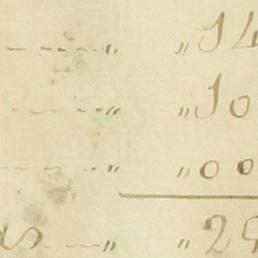 --- " " 14
--- " " 10
--- " " 00
as --- " " 29